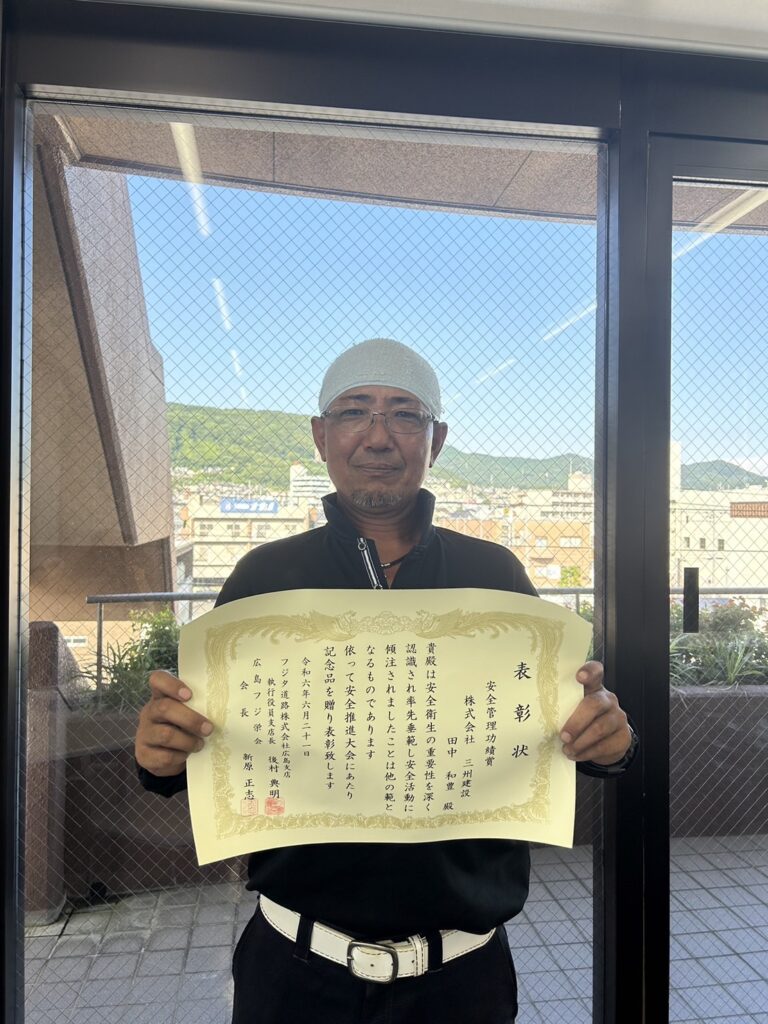 表彰状
安全管理功績賞
株式会社 三州建設
田中 和豊 殿
貴殿は安全衛生の重要性を深く
認識され率先垂範し安全活動に
傾注されましたことは他の範と
なるものであります
依って安全推進大会にあたり
記念品を贈り表彰致します
令和六年六月二十一日
フジタ道路株式会社広島支店
執行役員支店長 後村 典明
広島フジ栄会
会長 新原 正志